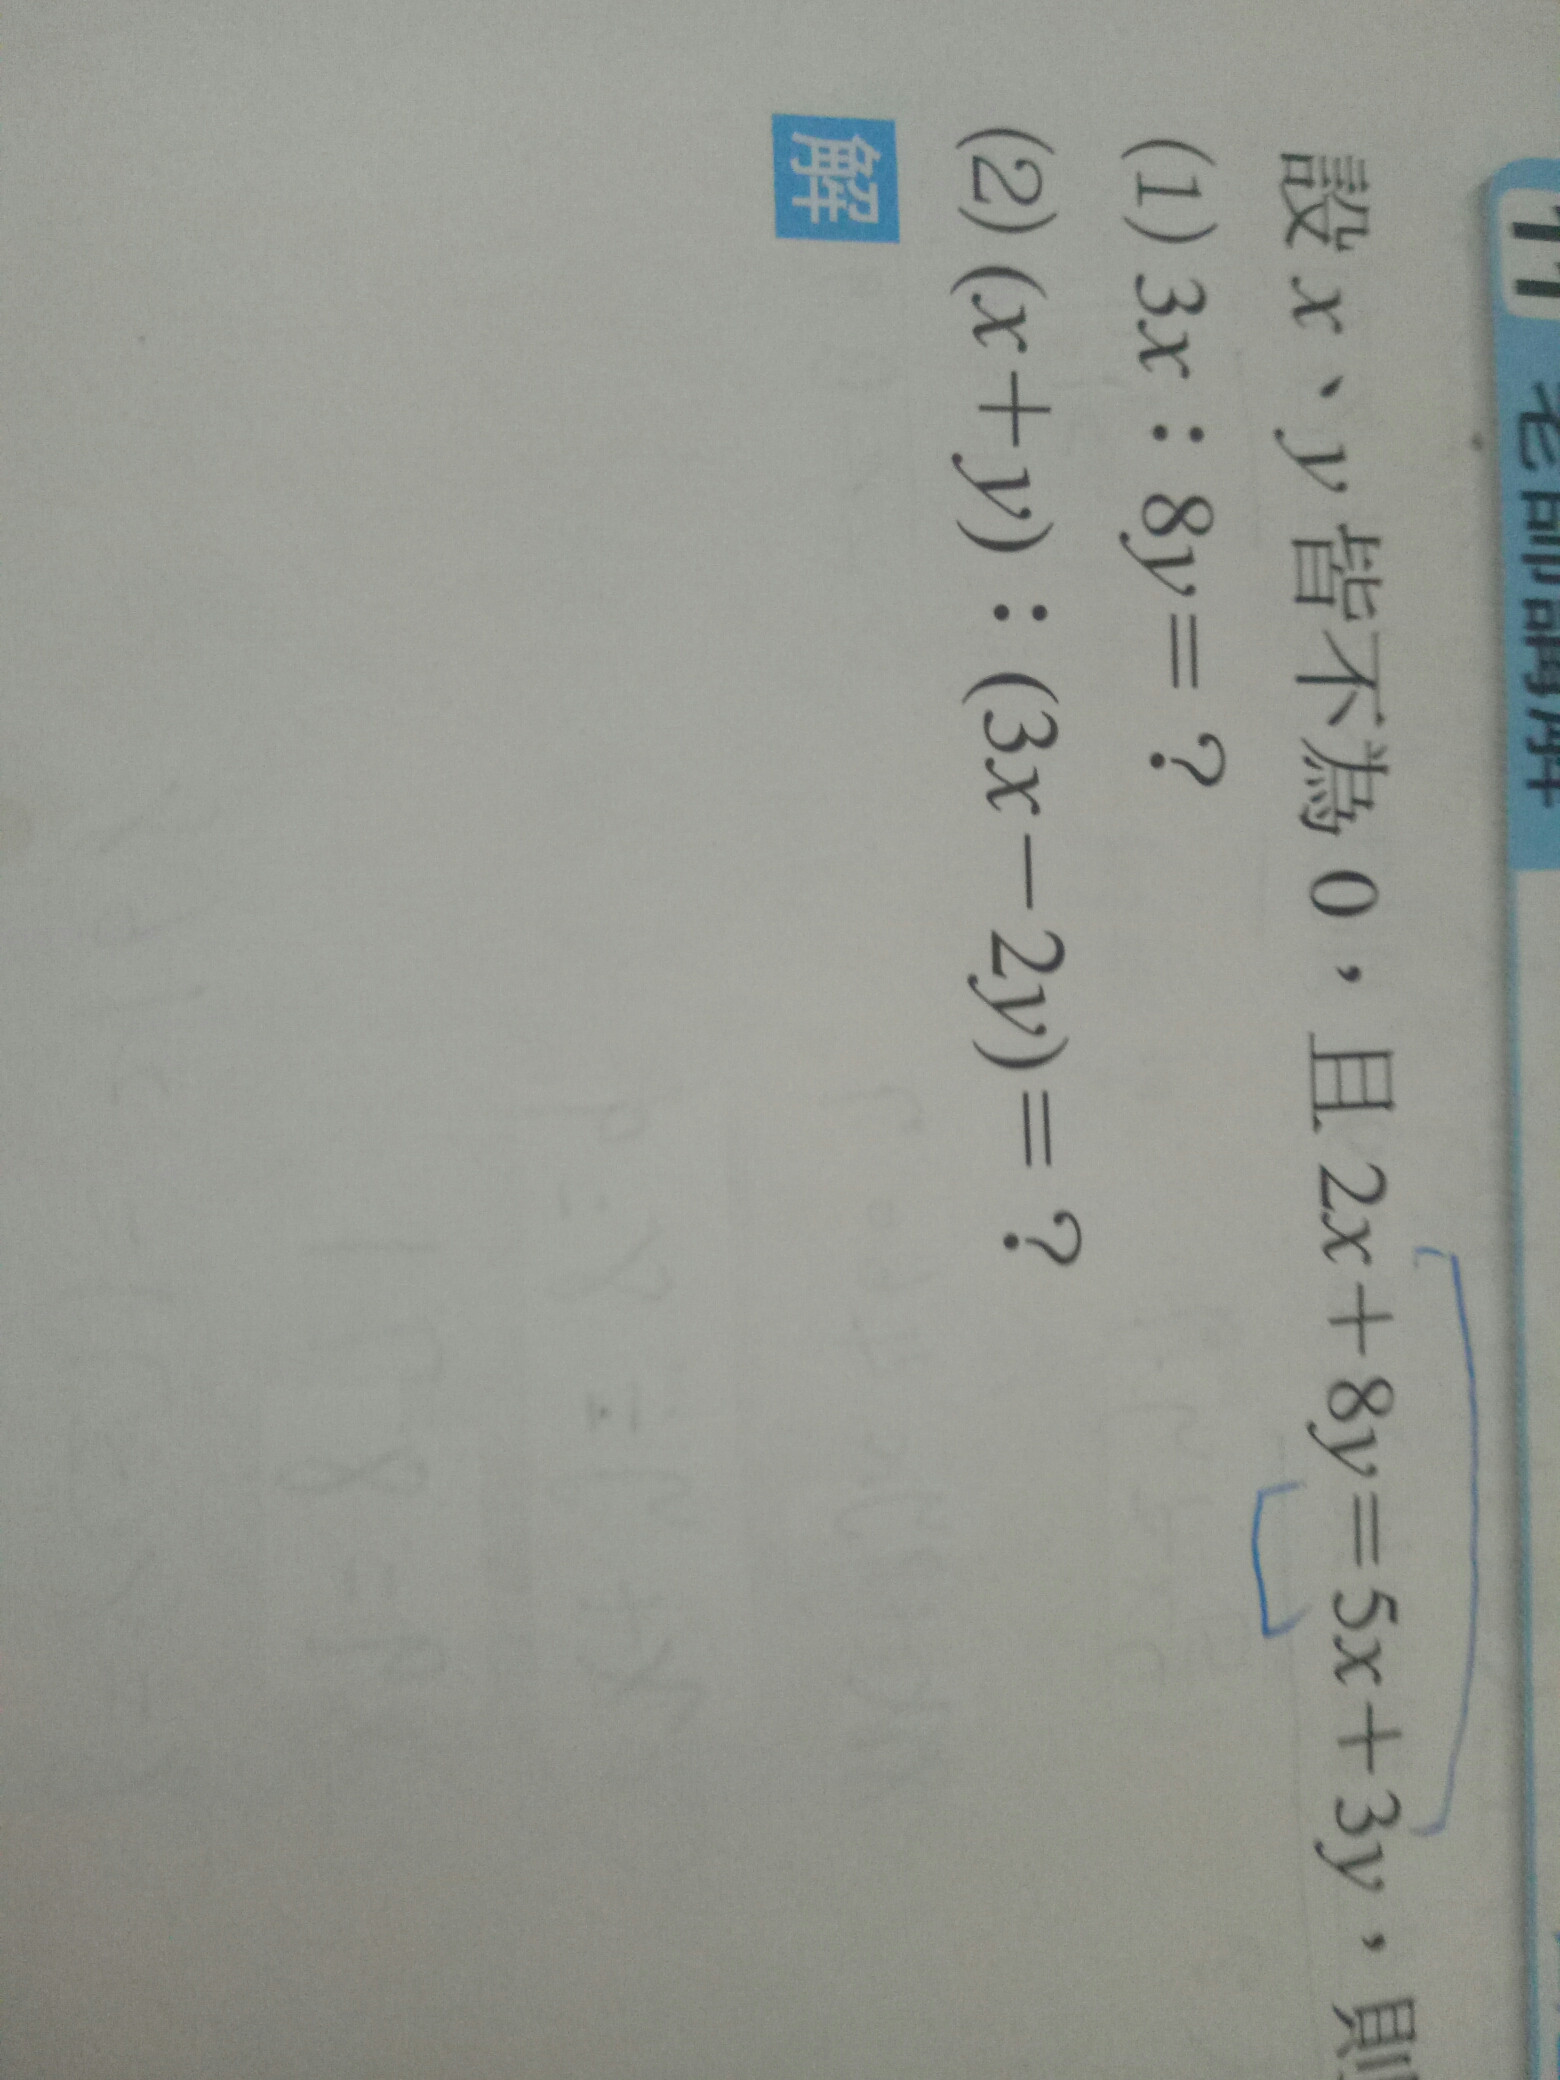 老師講解
設 x、y 皆不為 0,且 2x+8y=5x+3y,則
(1) 3x:8y=?
(2) (x+y):(3x-2y)=?
解